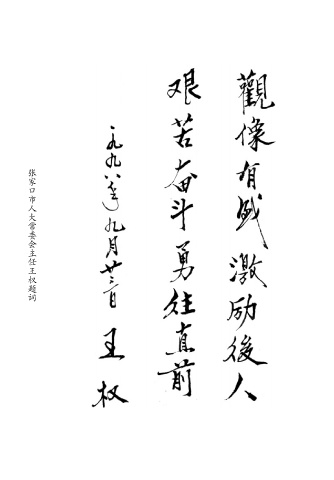 觀像有感激励後人
艰苦奋斗勇往直前
一九九八年九月廿三日
王权
张家口市人大常委会主任王权题词